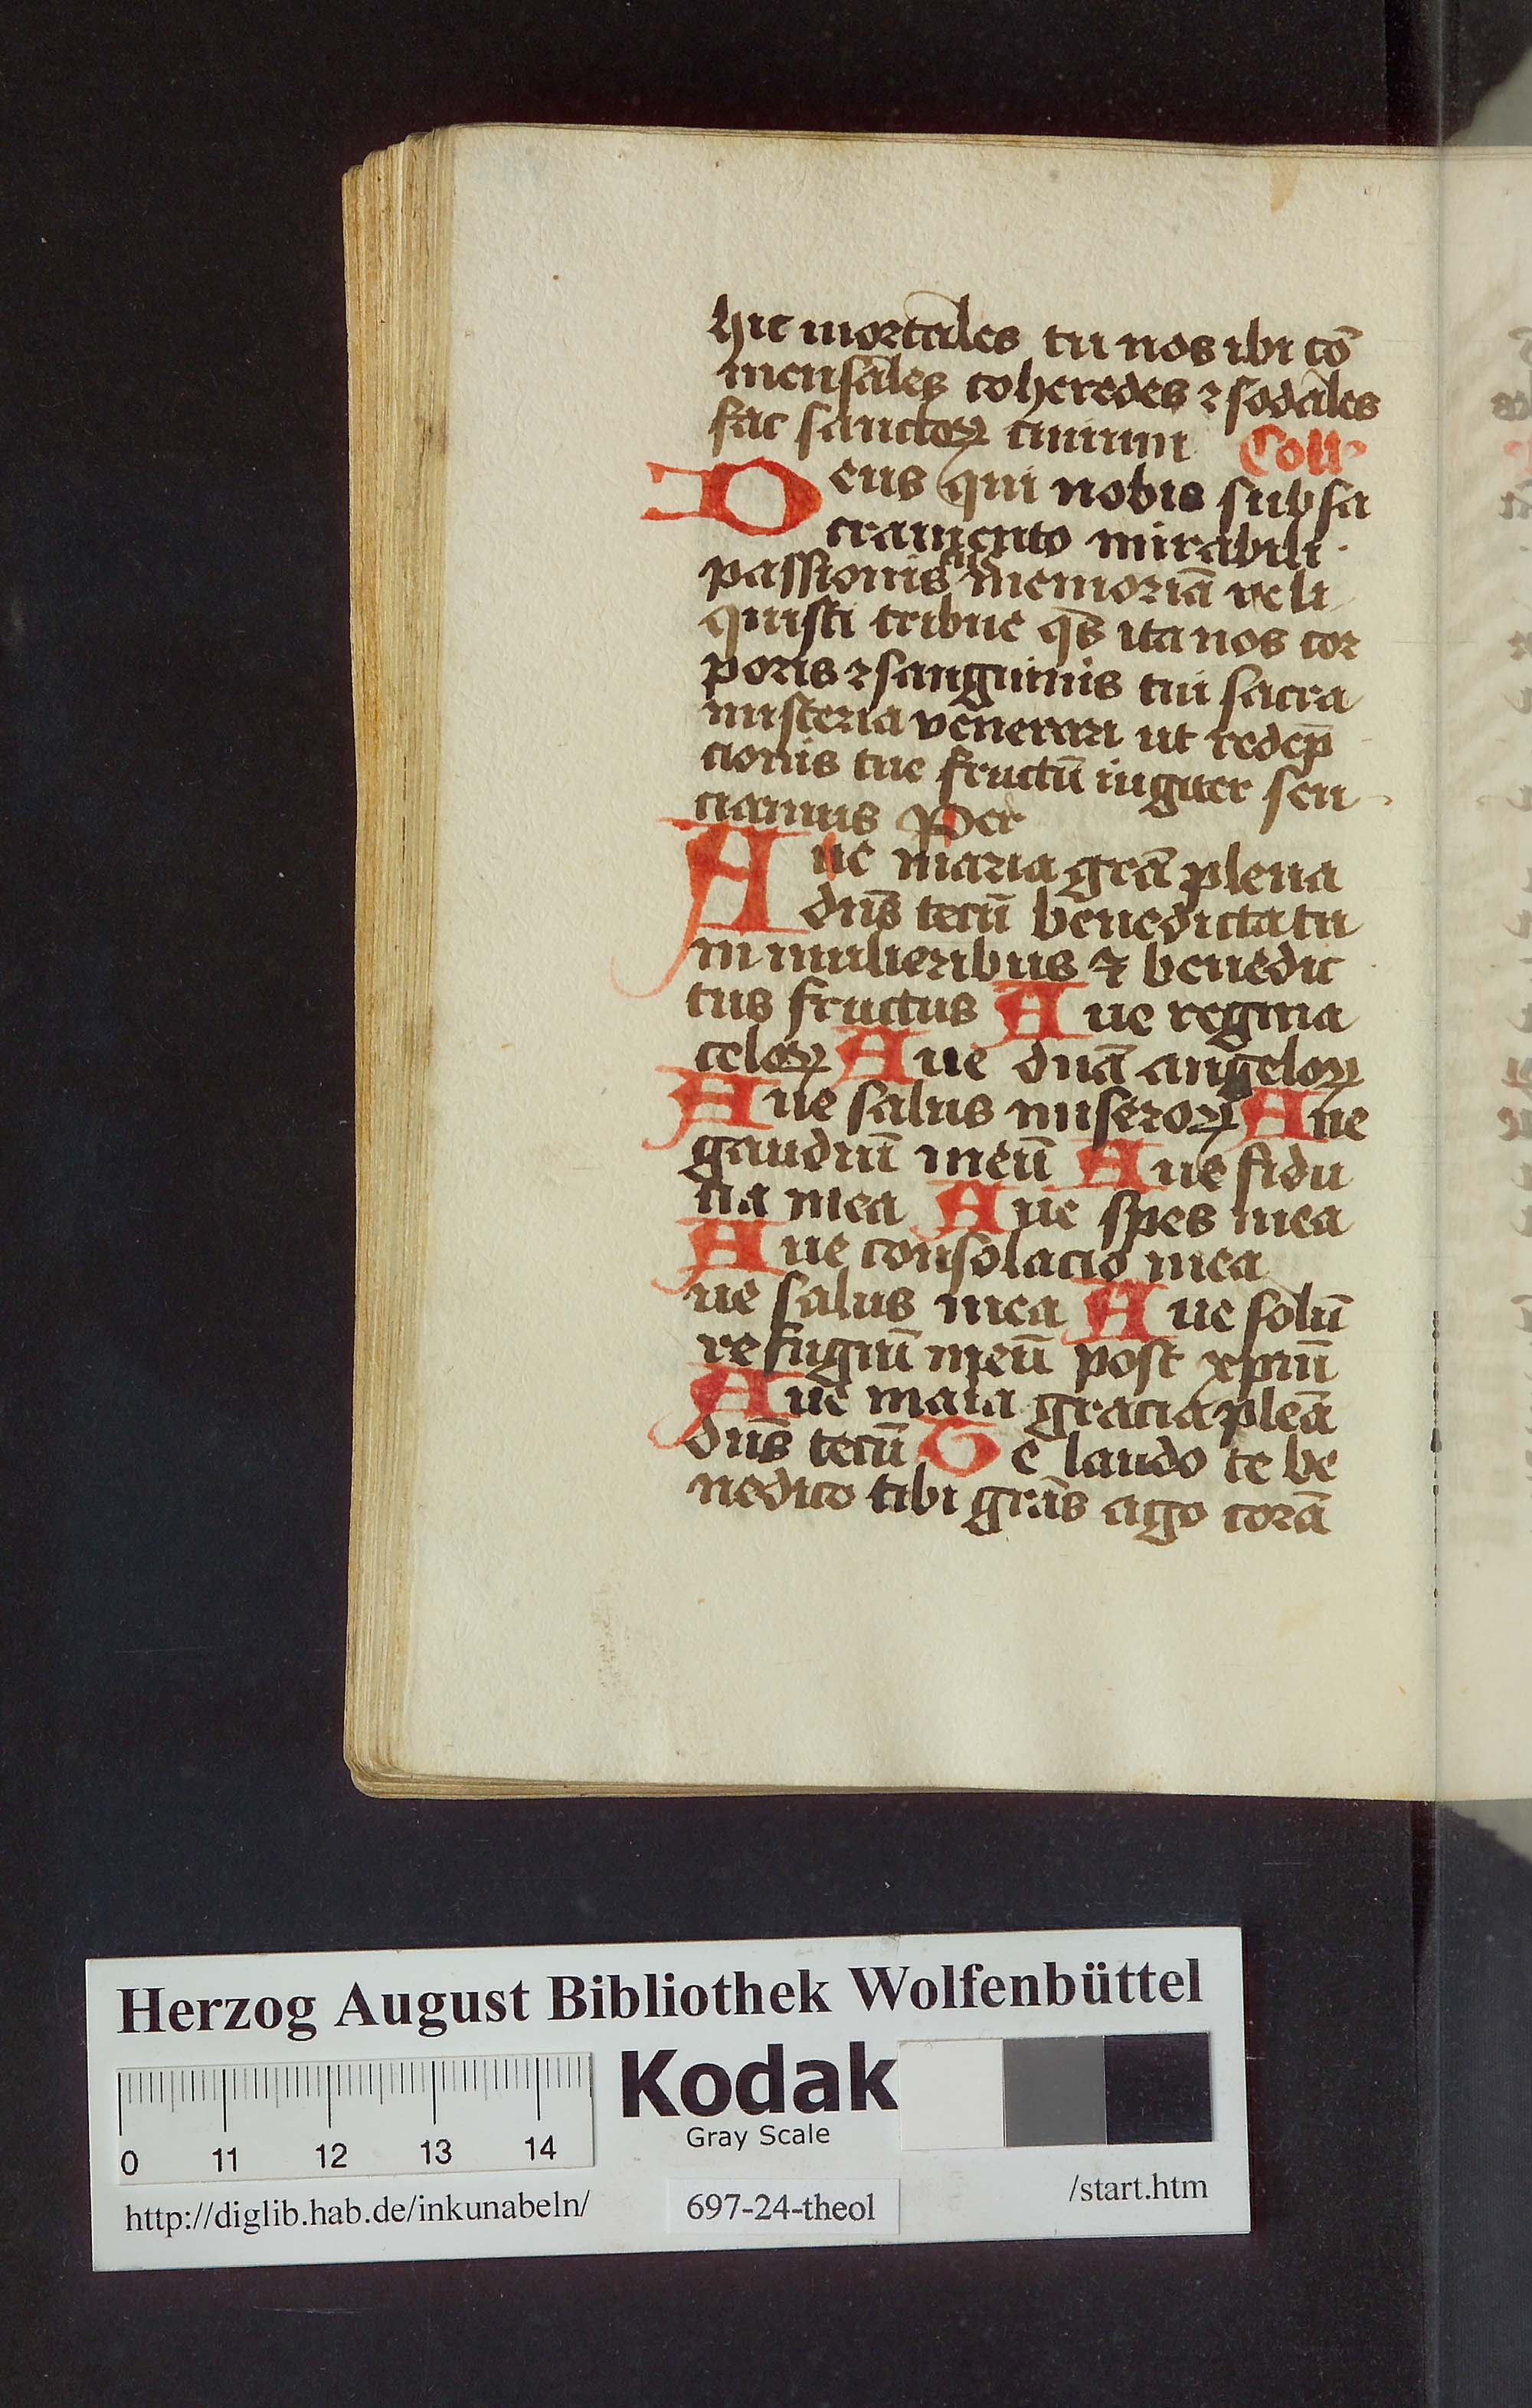 hic mortales tu nos ibi cō
mensales coheredes ⁊ sodales
fac sanctoꝝ ciuium Coll̕
Deus qui nobis sub sa
cramento mirabili
passionis tue memoriā reli
quisti tribue qs̄ ita nos cor
poris ⁊ sanguinis tui sacra
misteria venerari ut redēp
cionis tue fructū iugiter sen
ciamus Per
Aue maria grā plena
dn̄s tecū benedicta tu
in mulieribus ⁊ benedic
tus fructus Aue regina
celoꝝ Aue dnā angeloꝝ
Aue salus miseroꝝ Aue
gaudiū meū Aue fidu
cia mea Aue spes mea
Aue consolacio mea
ue salus mea Aue solū
refugiū meū post xpm̄
Aue maīa gracia pleā
dn̄s tecū Te laudo te be
nedico tibi grās ago corā
Herzog August Bibliothek Wolfenbüttel
Kodak
Gray Scale
0 11 12 13 14
http://diglib.hab.de/inkunabeln/ 697-24-theol /start.htm